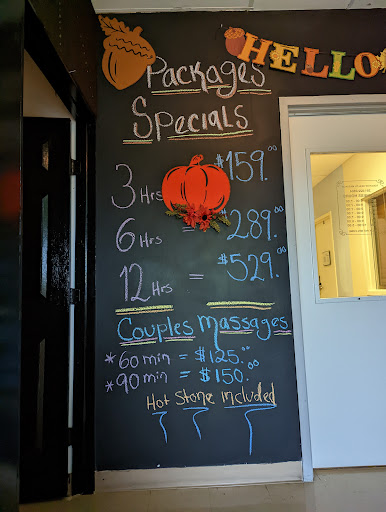 HELLO
Packages
Specials
3 Hrs $159.00
6 Hrs = $289.00
12 Hrs = $529.00
Couples Massages
* 60 min = $125.00
* 90 min = $150.00
Hot Stone Included